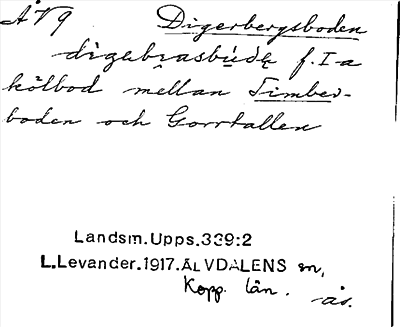 ÅV9 Digerbergsboden
digabrasbúdę f. I-a
kölbod mellan Timber-
boden och Gorrtallen
Landsm.Upps.339:2
L.Levander.1917.ÄLVDALENS sn,
Kopp. län.
ås.